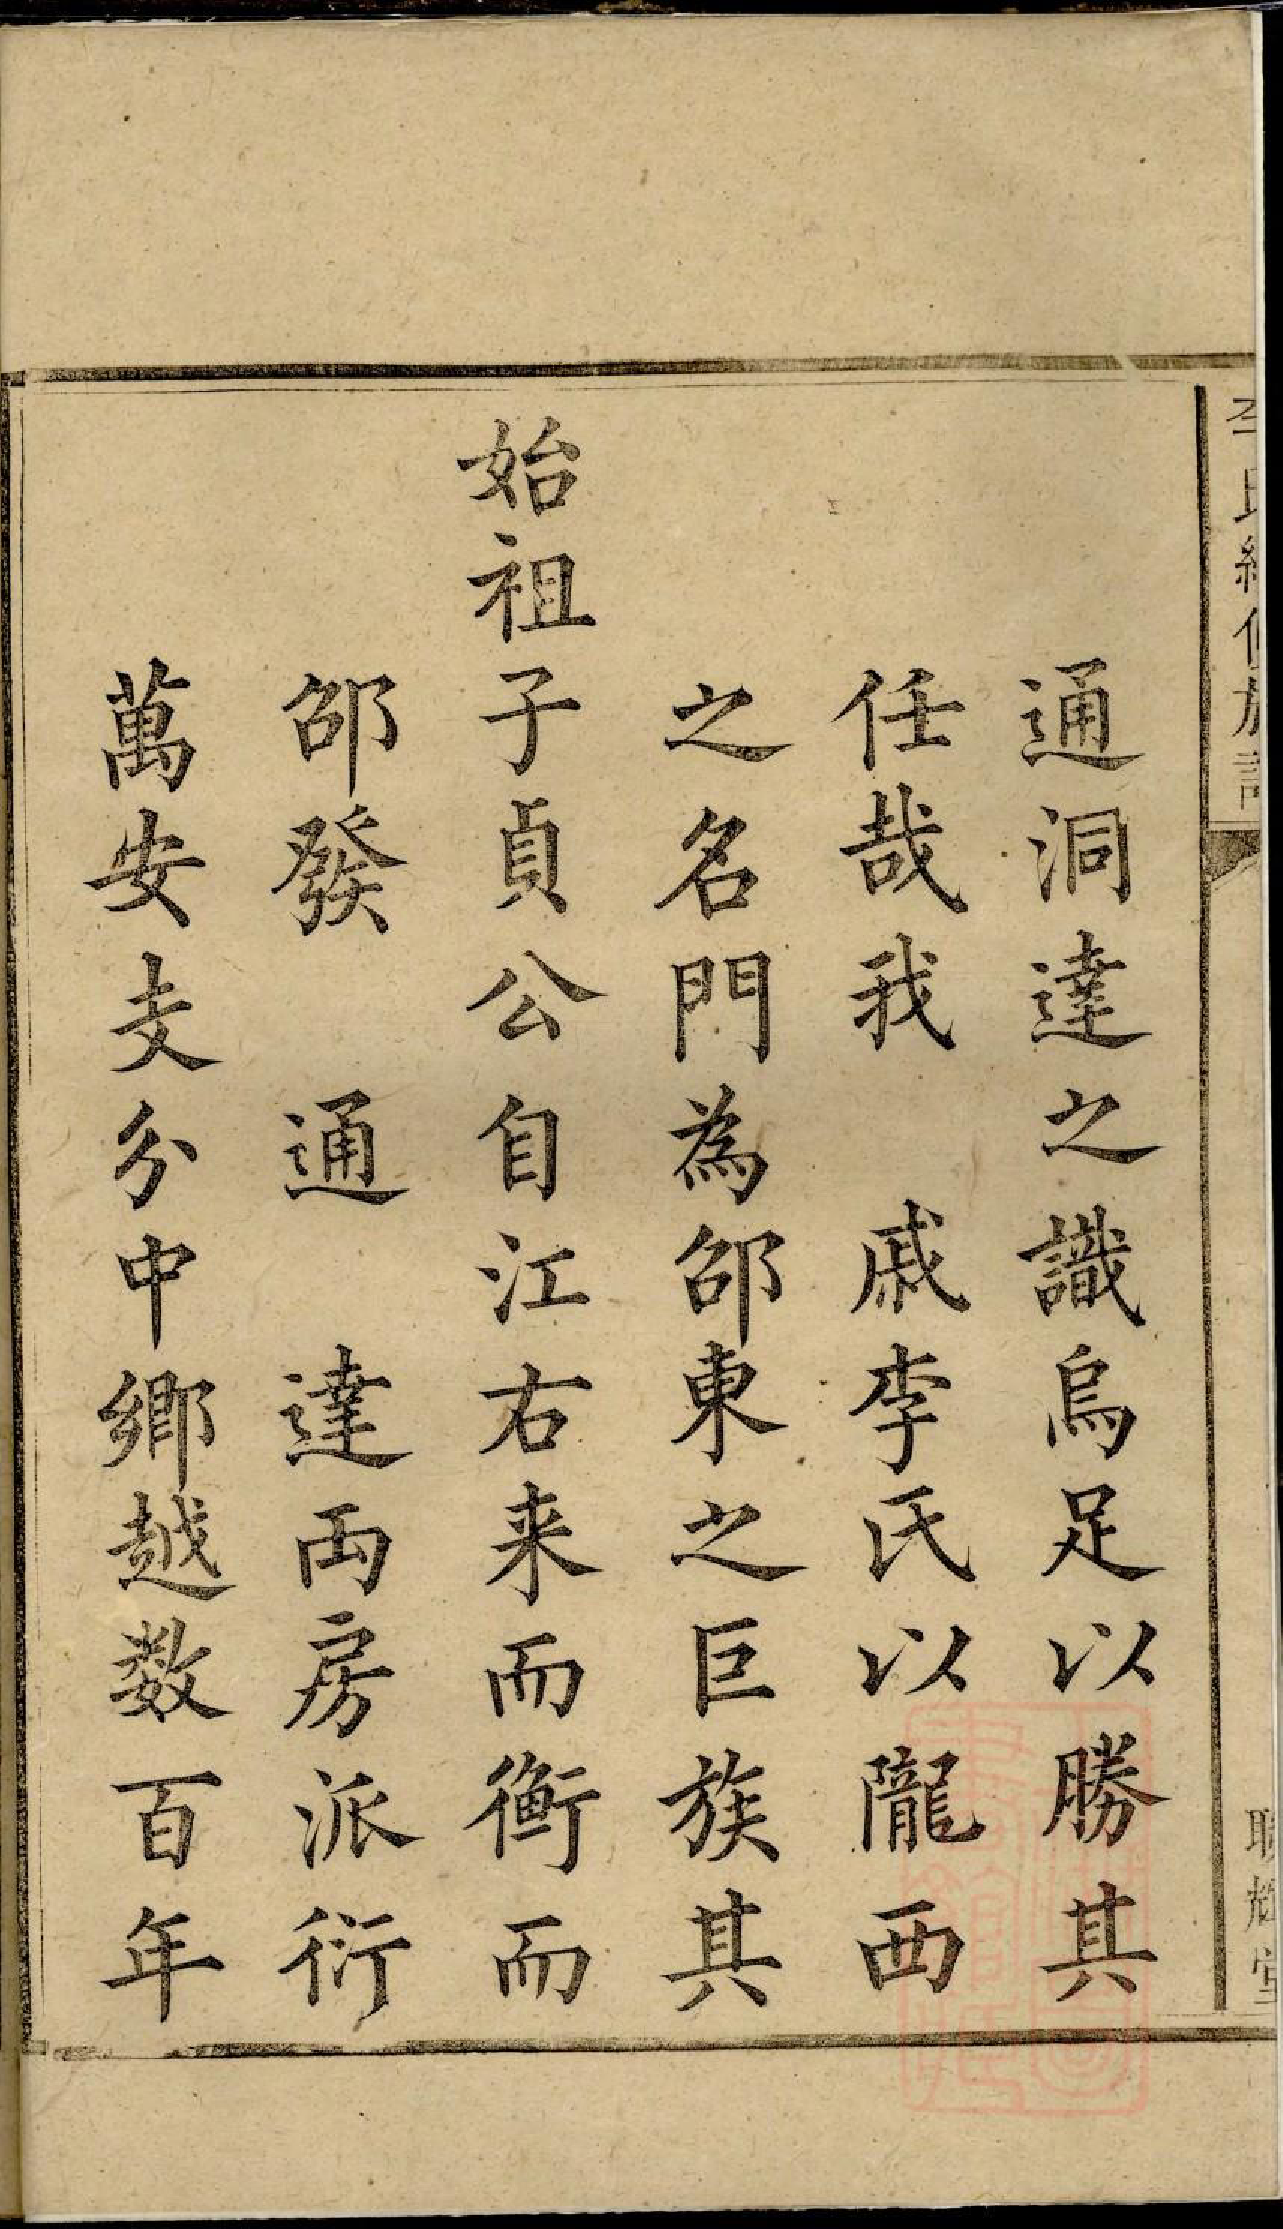 通洞達之識烏足以勝其
任哉我 戚李氏以隴西
之名門為邵東之巨族其
始祖子貞公自江右来而衡而
邵發 通 達両房派衍
萬安支分中鄉越数百年